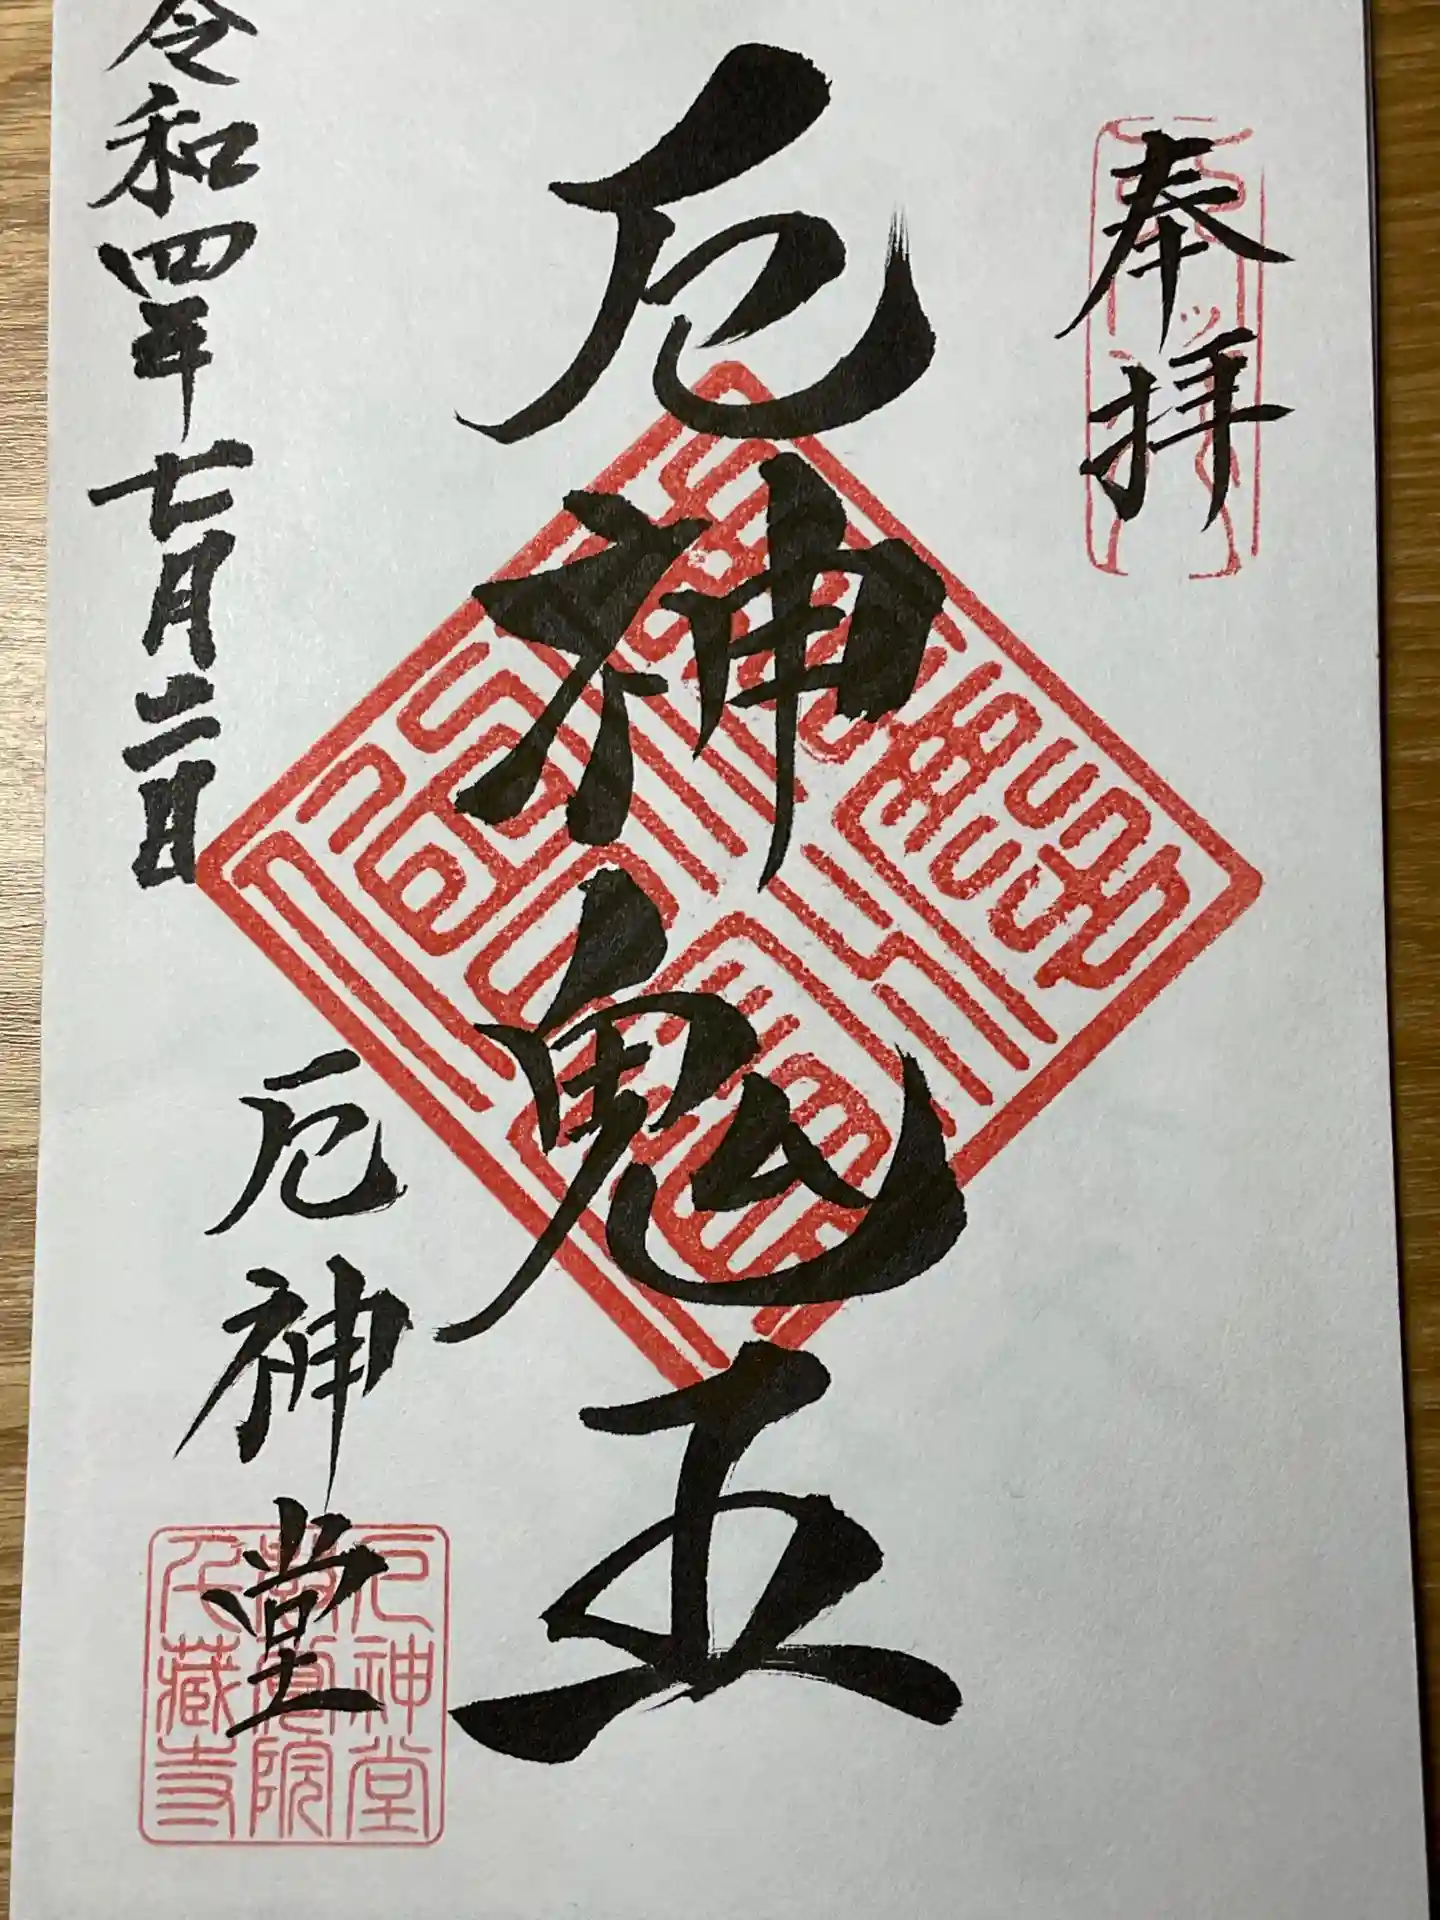 奉拝
厄神鬼王
令和四年七月二日
厄神堂
厄神堂
院
藏寺